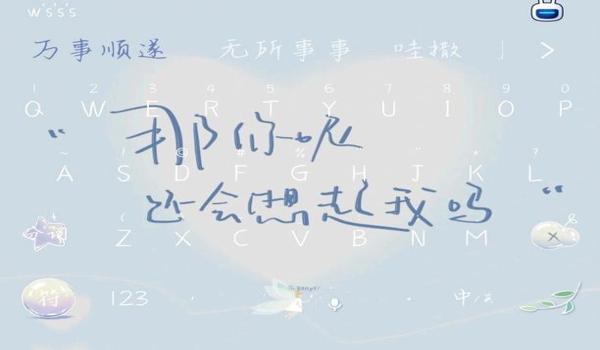 w's's's
万事顺遂 无所事事 哇撒 >
1 2 3 4 5 6 7 8 9 0
Q W E R T Y U I O P
“ 那你呢
~ ! @ # % ?
A S D F G H J K L
还会想起我吗 “
分词 Z X C V B N M ×
符 123 , 。 中/英